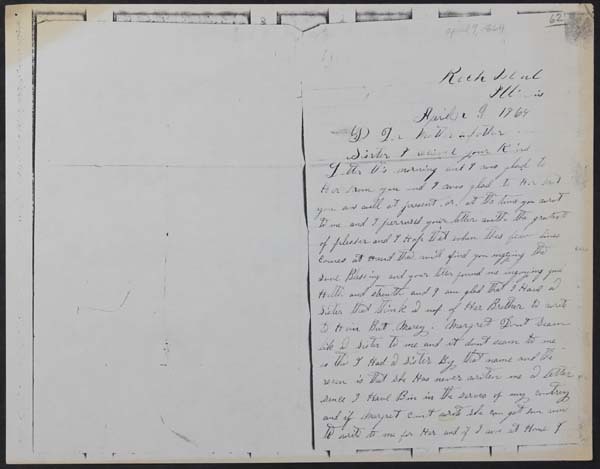 62
April 9, 1864
Rock Island
Illinois
April 9 1864
Sister I received your Kind
Letter this morning and I was glad to
Her from you and I was glad to Her that
you are well at present or at the time you wrot
to me and I perrused your letter with the gratest
of plesser and I Hope that when thes few lines
Comes at Hand tha will find you injoying the
same Blessing and your letter found me injoying good
Helth and strenth and I am glad that I Have a
Sister that think a nuf of Her Brother to write
to Him But Margret Dont seam
like a Sister to me and it dont seam to me
as tho I Had a Sister By that name and the
reson is that she Has never writen me a letter
since I Have Bin in the serves of my contrey
and if Margret can't write she can get some one
to write to me for Her and if I was at Home I